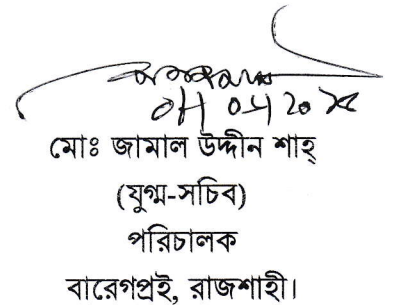 মোঃ জামাল উদ্দীন শাহ্
(যুগ্ম-সচিব)
পরিচালক
বারেগপ্রই, রাজশাহী।